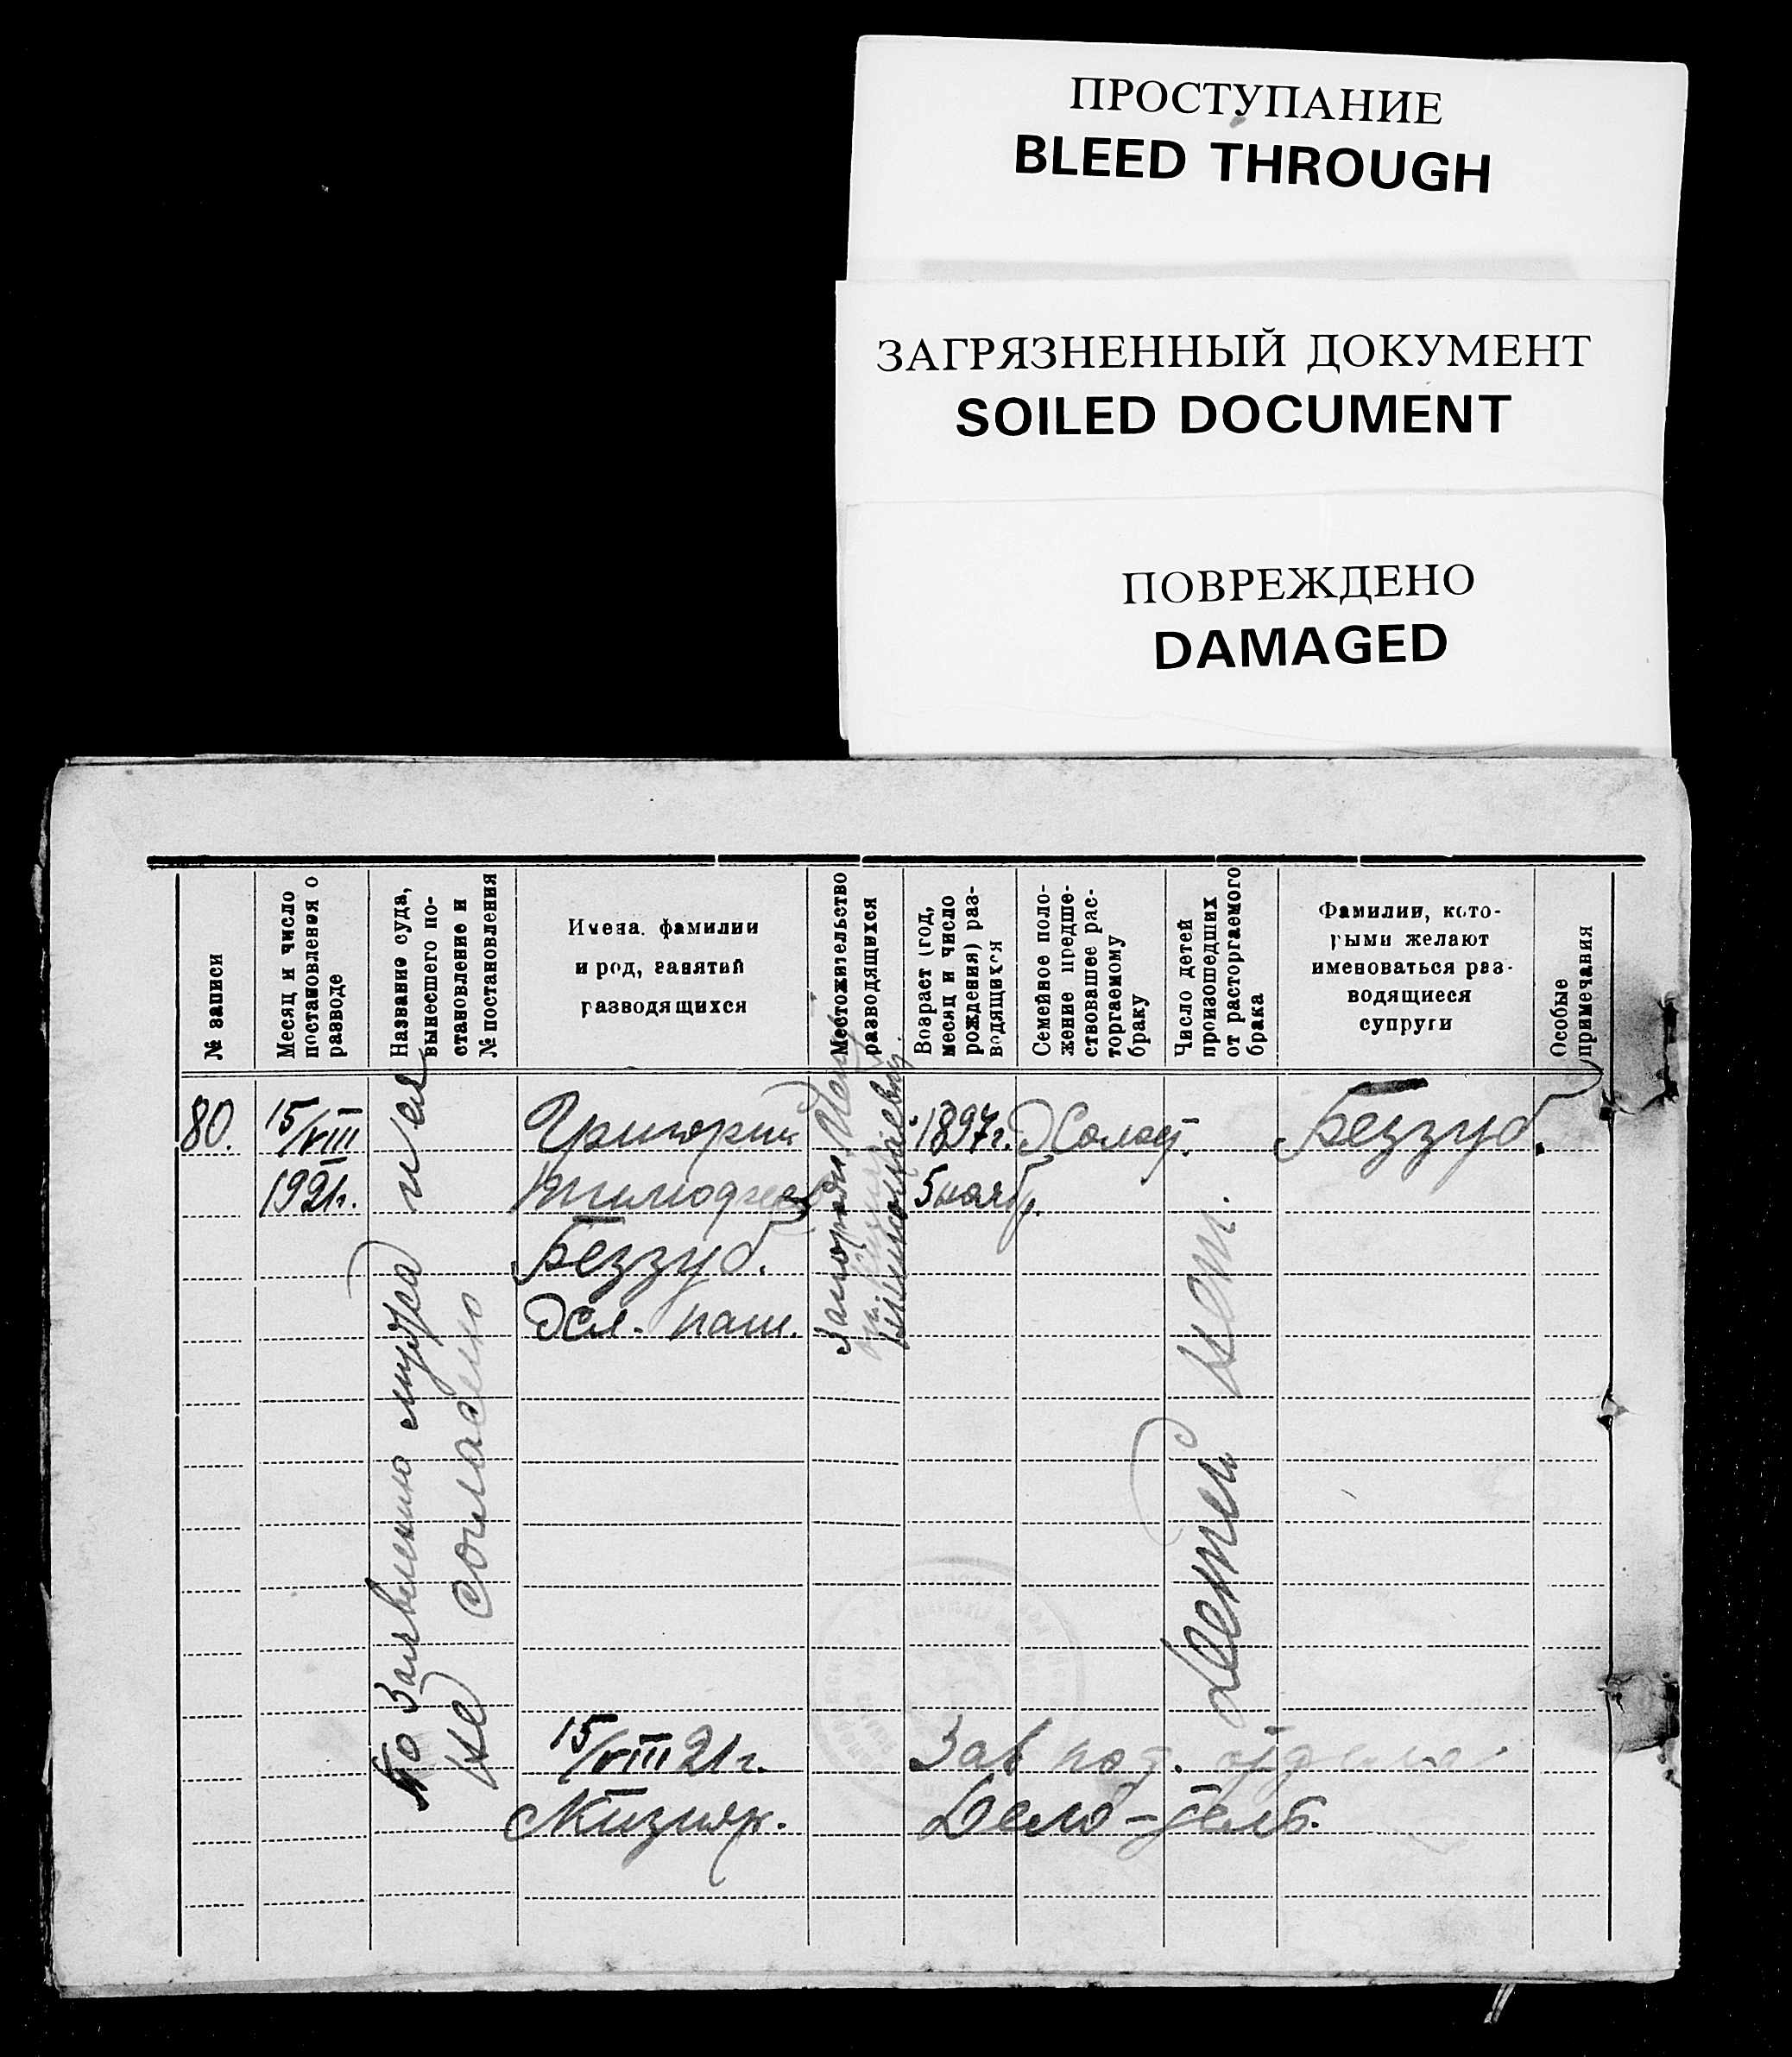 ПРОСТУПАНИЕ
BLEED THROUGH
ЗАГРЯЗНЕННЫЙ ДОКУМЕНТ
SOILED DOCUMENT
ПОВРЕЖДЕНО
DAMAGED
№ записи
Месяц и число
постановления о
разводе
Название суда,
вынесшего по-
становление и
№ постановления
Имена, фамилии
и род, занятий
разводящихся
Местожительство
разводящихся
Возраст (год,
месяц и число
рождения) раз-
водящихся
Семейное поло-
жение предше-
ствовавшее рас-
торгаемому
браку
Число детей
происшедших
от расторгаемого
брака
Фамилии, кото-
рыми желают
именоваться раз-
водящиеся
супруги
Особые
примечания
80.
15/VIII
1921г.
По Заявлению мужа
на согласно
Григорий
Тимофеев
Беззуб.
Хл. паш.
1897г.
5 ноябр.
Холост.
Детей нет.
Беззуб.
15/VIII 21г.
Зав под. отдела
Дело-